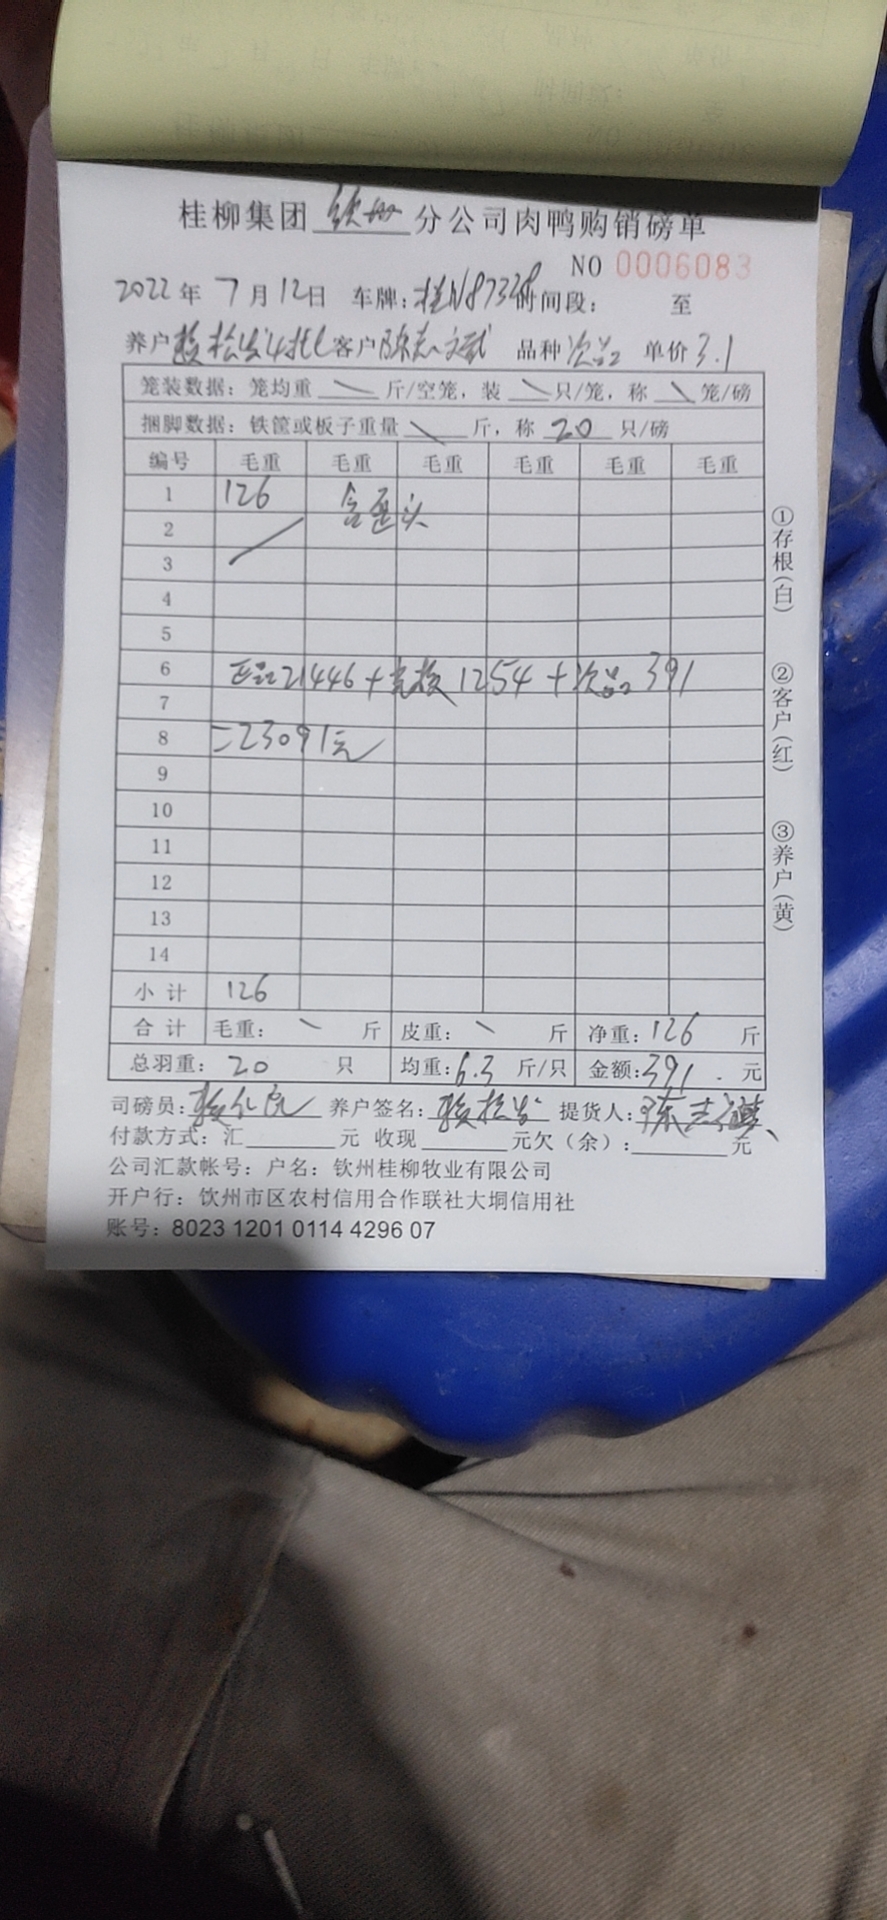 桂柳集团 钦州 分公司肉鸭购销磅单
NO 0006083
2022年 7月12日 车牌：桂N87328 时间段： 至
养户 客户 品种 次品 单价 3.1
笼装数据：笼均重 斤/空笼，装 只/笼，称 笼/磅
捆脚数据：铁筐或板子重量 斤，称 20 只/磅
编号 毛重 毛重 毛重 毛重 毛重 毛重
1 126 含歪头
2
3
4
5
6 正品21446+ 1254+次品391
7
8 =23091元
9
10
11
12
13
14
小计 126
合计 毛重： 斤 皮重： 斤 净重：126 斤
总羽重：20 只 均重：6.3 斤/只 金额：391. 元
司磅员： 养户签名： 提货人：
付款方式：汇 元 收现 元欠（余）： 元
公司汇款帐号：户名：钦州桂柳牧业有限公司
开户行：钦州市区农村信用合作联社大垌信用社
账号：8023 1201 0114 4296 07
①存根（白）
②客户（红）
③养户（黄）